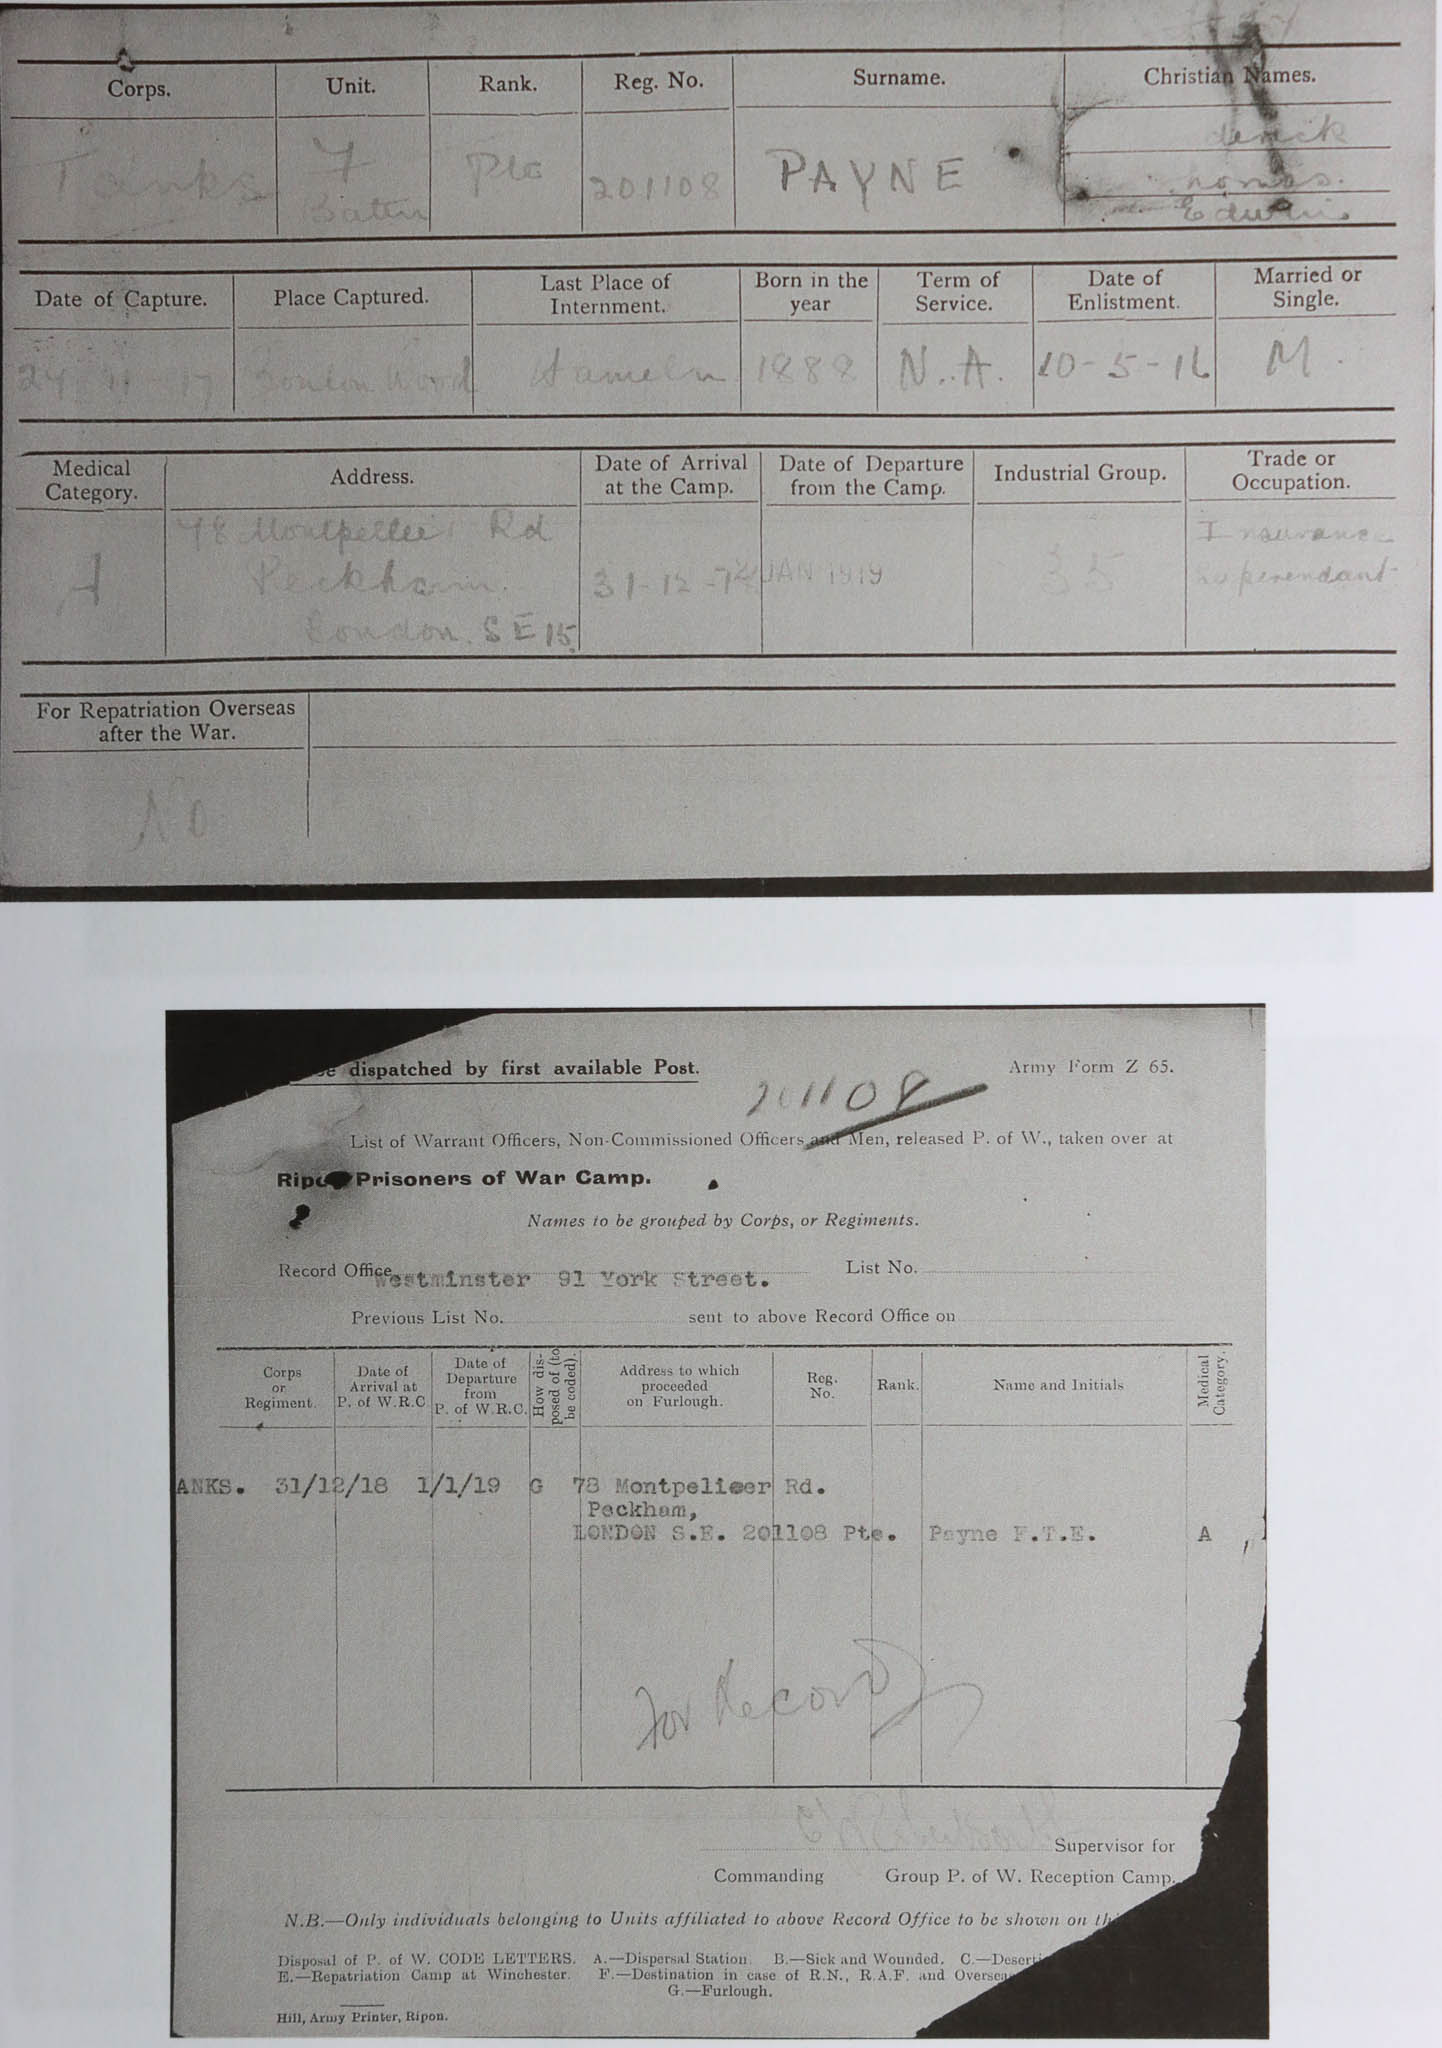 Corps. Unit. Rank. Reg. No. Surname. Christian Names.
Tanks 7 Battn Pte 201108 PAYNE derick
homas.
Edwin
Date of Capture. Place Captured. Last Place of Internment. Born in the year Term of Service. Date of Enlistment. Married or Single.
24 11 17 Wood Hameln 1888 N.A. 10-5-16 M.
Medical Category. Address. Date of Arrival at the Camp. Date of Departure from the Camp. Industrial Group. Trade or Occupation.
78 Montpellier Rd Insurance
A Peckham. 31-12- JAN 1919 35 Superendant
London. SE 15.
For Repatriation Overseas
after the War.
No
be dispatched by first available Post. Army Form Z 65.
201108
List of Warrant Officers, Non-Commissioned Officers and Men, released P. of W., taken over at
Ripon Prisoners of War Camp.
Names to be grouped by Corps, or Regiments.
Record Office Westminster 91 York Street. List No.
Previous List No. sent to above Record Office on
Corps or Regiment. Date of Arrival at P. of W.R.C. Date of Departure from P. of W.R.C. How disposed of (to be coded). Address to which proceeded on Furlough. Reg. No. Rank. Name and Initials Medical Category.
ANKS. 31/12/18 1/1/19 G 78 Montpelieer Rd.
Peckham,
LONDON S.E. 201108 Pte. Payne F.T.E. A
For Records
Supervisor for
Commanding Group P. of W. Reception Camp.
N.B.—Only individuals belonging to Units affiliated to above Record Office to be shown on thi
Disposal of P. of W. CODE LETTERS. A.—Dispersal Station. B.—Sick and Wounded. C.—Deserti
E.—Repatriation Camp at Winchester. F.—Destination in case of R.N., R.A.F. and Oversea
G.—Furlough.
Hill, Army Printer, Ripon.